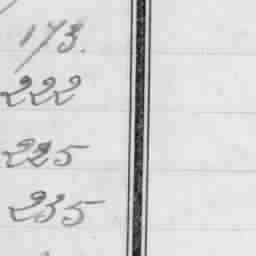 173.
222
225
235